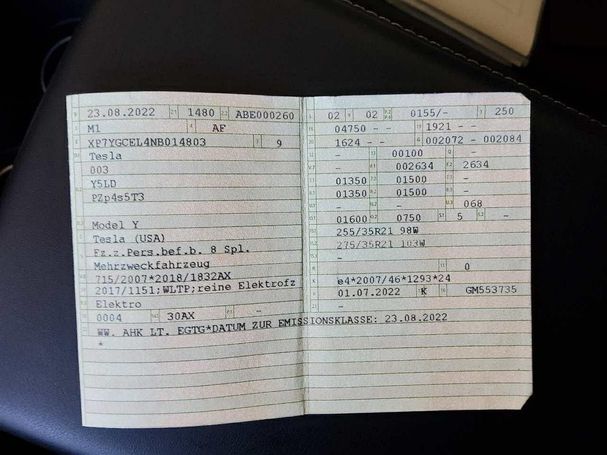 23.08.2022 1480 ABE000260
M1 AF
XP7YGCEL4NB014803 9
Tesla
003
Y5LD
PZp4s5T3
Model Y
Tesla (USA)
Fz.z.Pers.bef.b. 8 Spl.
Mehrzweckfahrzeug
715/2007*2018/1832AX
2017/1151;WLTP;reine Elektrofz
Elektro
0004 30AX -
WW. AHK LT. EGTG*DATUM ZUR EMISSIONSKLASSE: 23.08.2022
*
02 02 0155/- 250
04750 - - 1921 - -
1624 - - 002072 - 002084
- 00100 -
- 002634 2634
01350 01500 -
01350 01500 -
- - 068
01600 0750 5 -
255/35R21 98W
275/35R21 103W
-
- 0
e4*2007/46*1293*24
01.07.2022 K GM553735
-